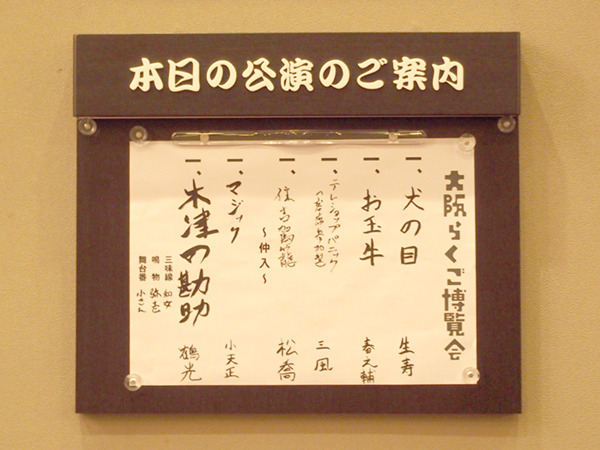 本日の公演のご案内
大阪らくご博覧会
一、犬の目 生寿
一、お玉牛 春之輔
一、テレショップパニック 三風
一、住吉駕籠 松喬
～仲入～
一、マジック 小天正
一、木津の勘助 鶴光
三味線 和女
鳴物 弥壱
舞台番 小きん